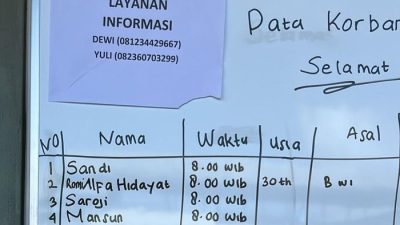 LAYANAN
INFORMASI
DEWI (081234429667)
YULI (082360703299)
Data Korban
Selamat
NO Nama Waktu Usia Asal
1 Sandi 8.00 WIB
2 Romi Alfa Hidayat 8.00 WIB 30 th BWI
3 Saroji 8.00 WIB
4 Mansun 8.00 WIB